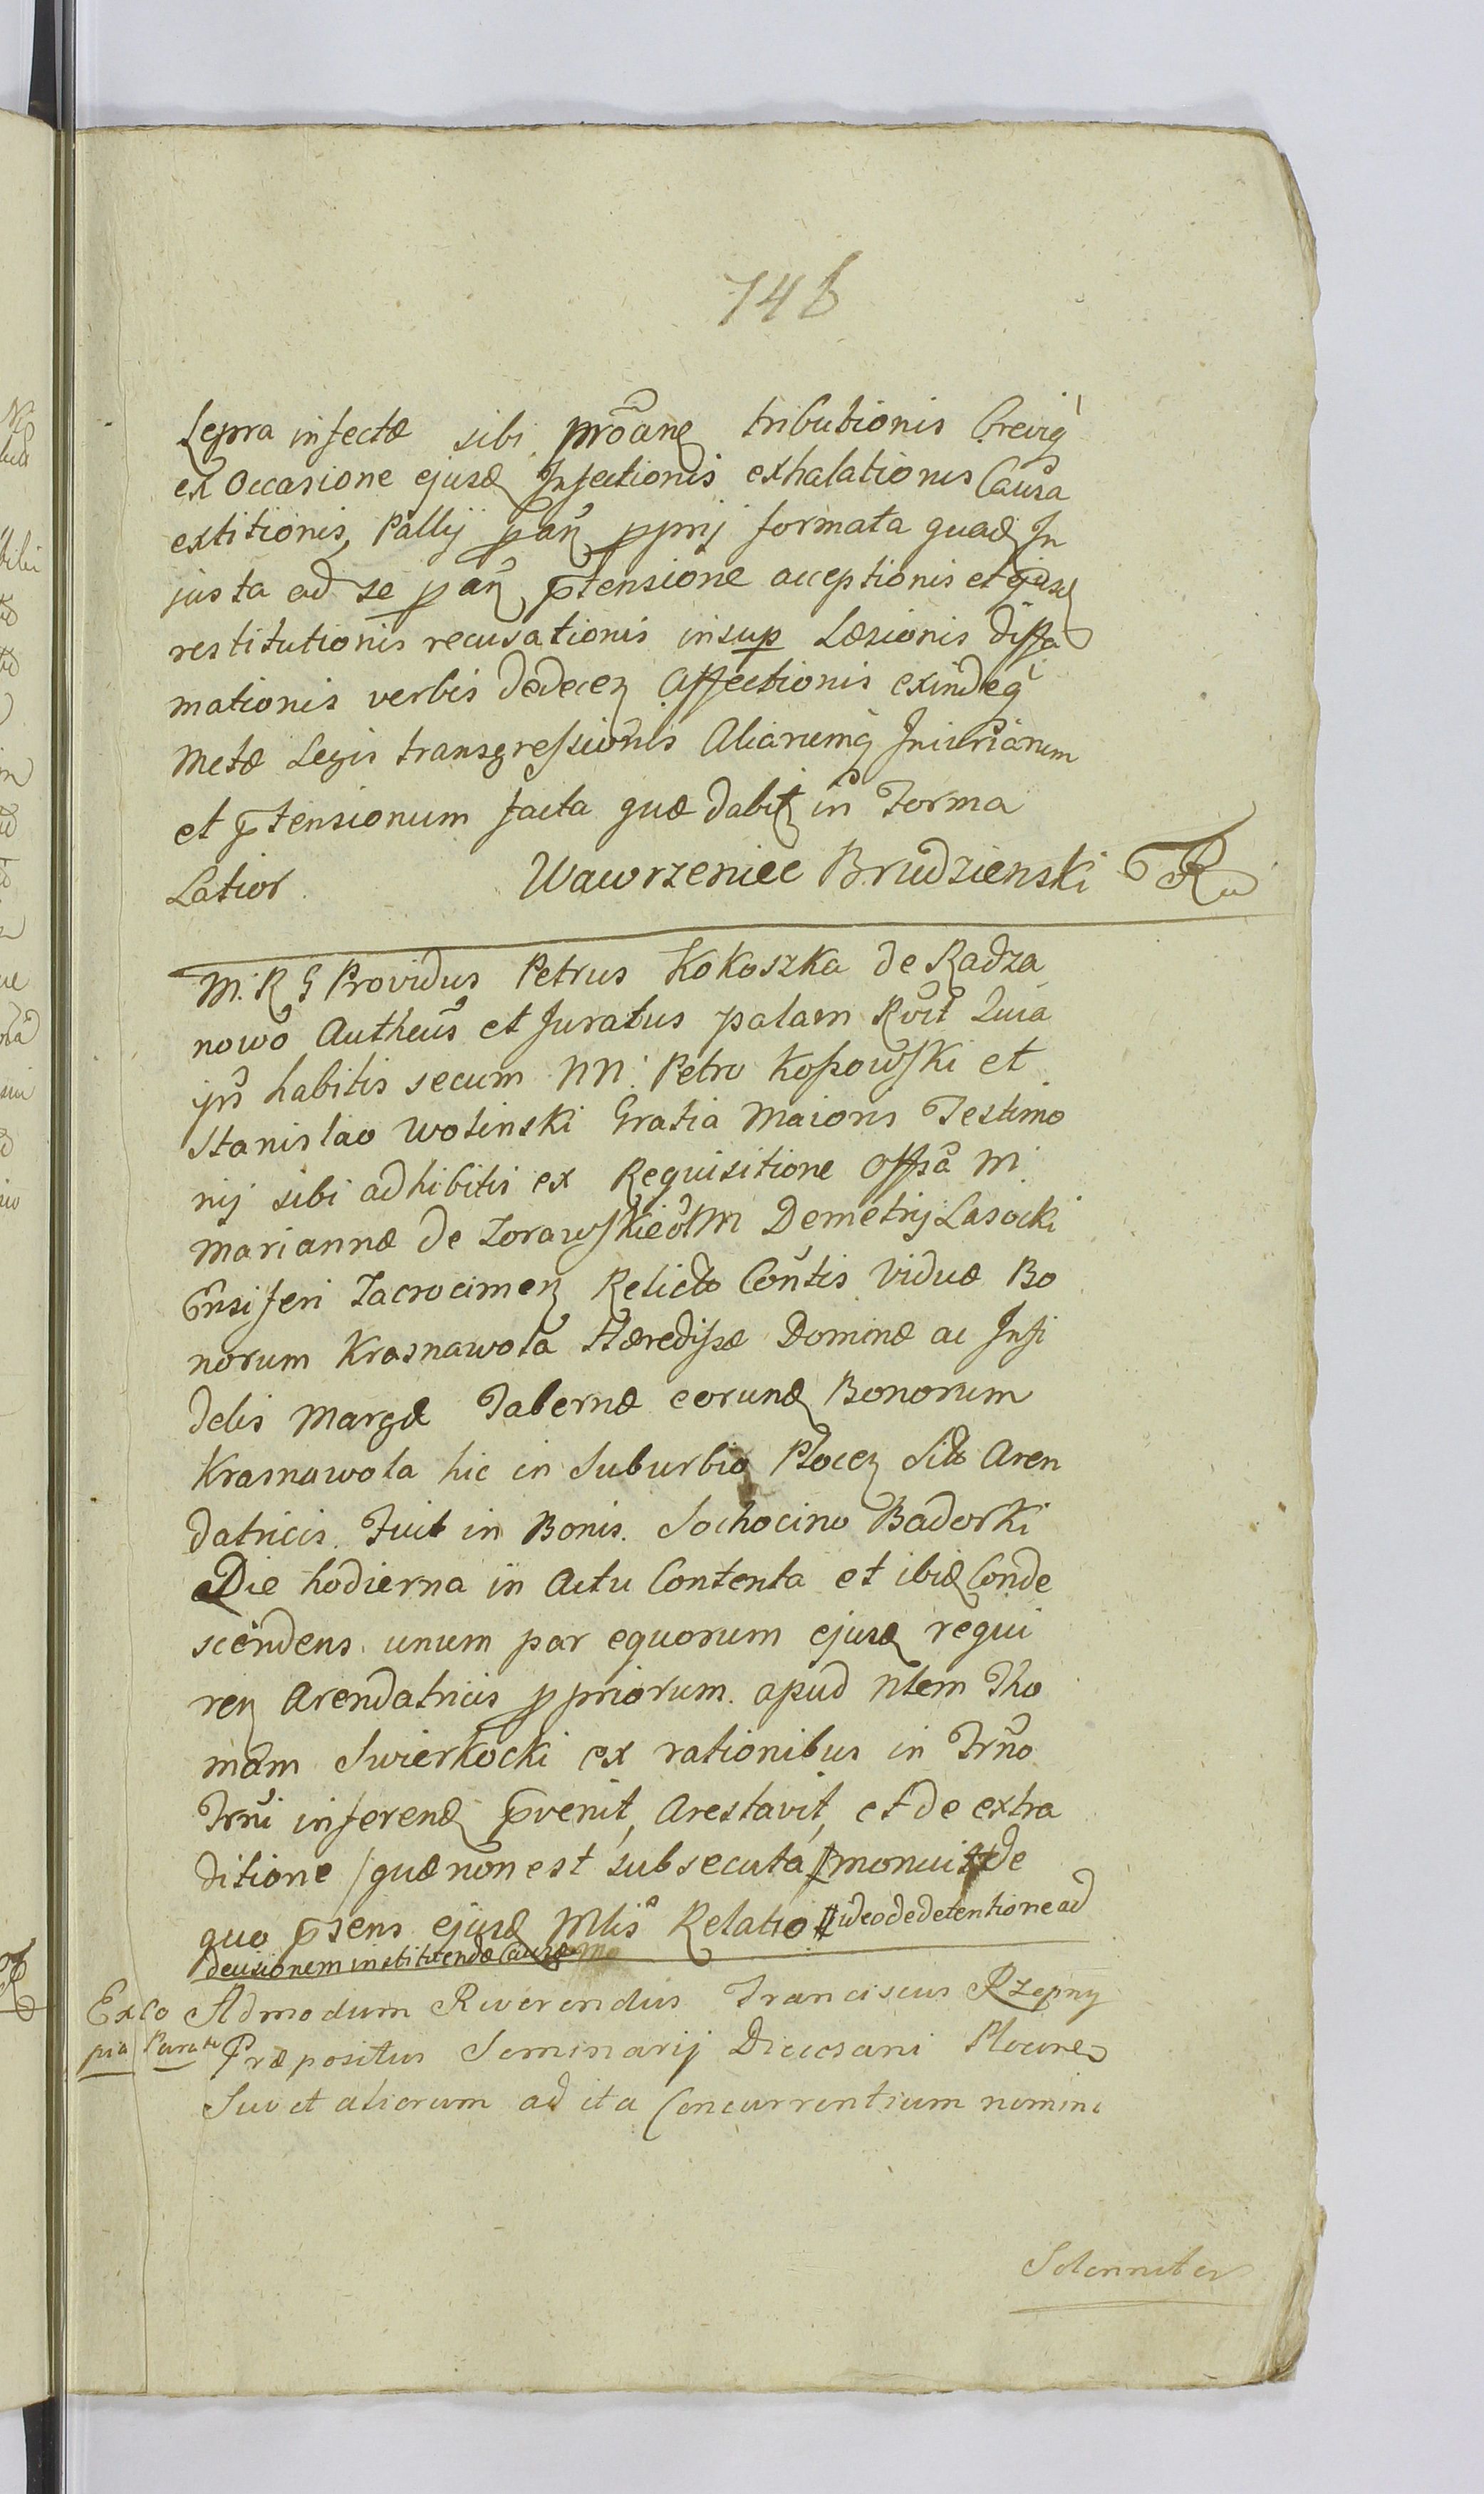 146
Lepra infectæ sibi prõang tributionis Crevig̀
ex Occasione ejusd Infectionis exhalationis Causa
extitionis, Pallij p an pprij formata quad In
justa ad se p an ptensione acceptionis et ejusd
restitutionis recusationis insup Læsionis diffa
mationis verbis dedecen Affectionis exindeq̀
Metæ Legis transgressionis Aliarumq̀ Iniuriarum
et ptensionum facta quæ dabit in Forma
Latior Wawrzeniec Brudzienski
M. R G Providus Petrus Kokoszka de Radza
nowo Autheus et Juratus palam Rvit Quia
ips habitis secum NN. Petro Kossowski et
Stanislao Wolinski Gratia Maioris Testimo
nij sibi adhibitis ex Requisitione Offsa M.
Mariannæ de Zorawskie olM Demetrij Lasocki
Ensiferi Zacrocimen Relictæ Contis Viduæ Bo
norum Krasnawola Hæredissæ Dominæ ac Infi
delis Margæ Tabernæ eorund Bonorum
Krasnawola hic in Suburbio Plocen Sitæ Aren
datricis. Fuit in Bonis. Sochocino Badorki
Die hodierna in Actu Contenta et ibid Conde
scendens unum par equorum ejusd requi
ren Arendatricis ppriorum. apud Nlem Tho
mam Swierkocki ex rationibus in Trno
Trni inferend pvenit, Arestavit, et de extra
ditione /quæ non est subsecuta/ monuit de
quo psens ejusd Mlis Relatio ideo de detentione ad
decisionem instituendæ Causæ
Ex Co Admodum Reverendus Franciscus Rzepny
pia Parata Præpositus Seminarij Diæcesani Plocnen
Suo et aliorum ad ita Concurrentium nomine
Solenniter